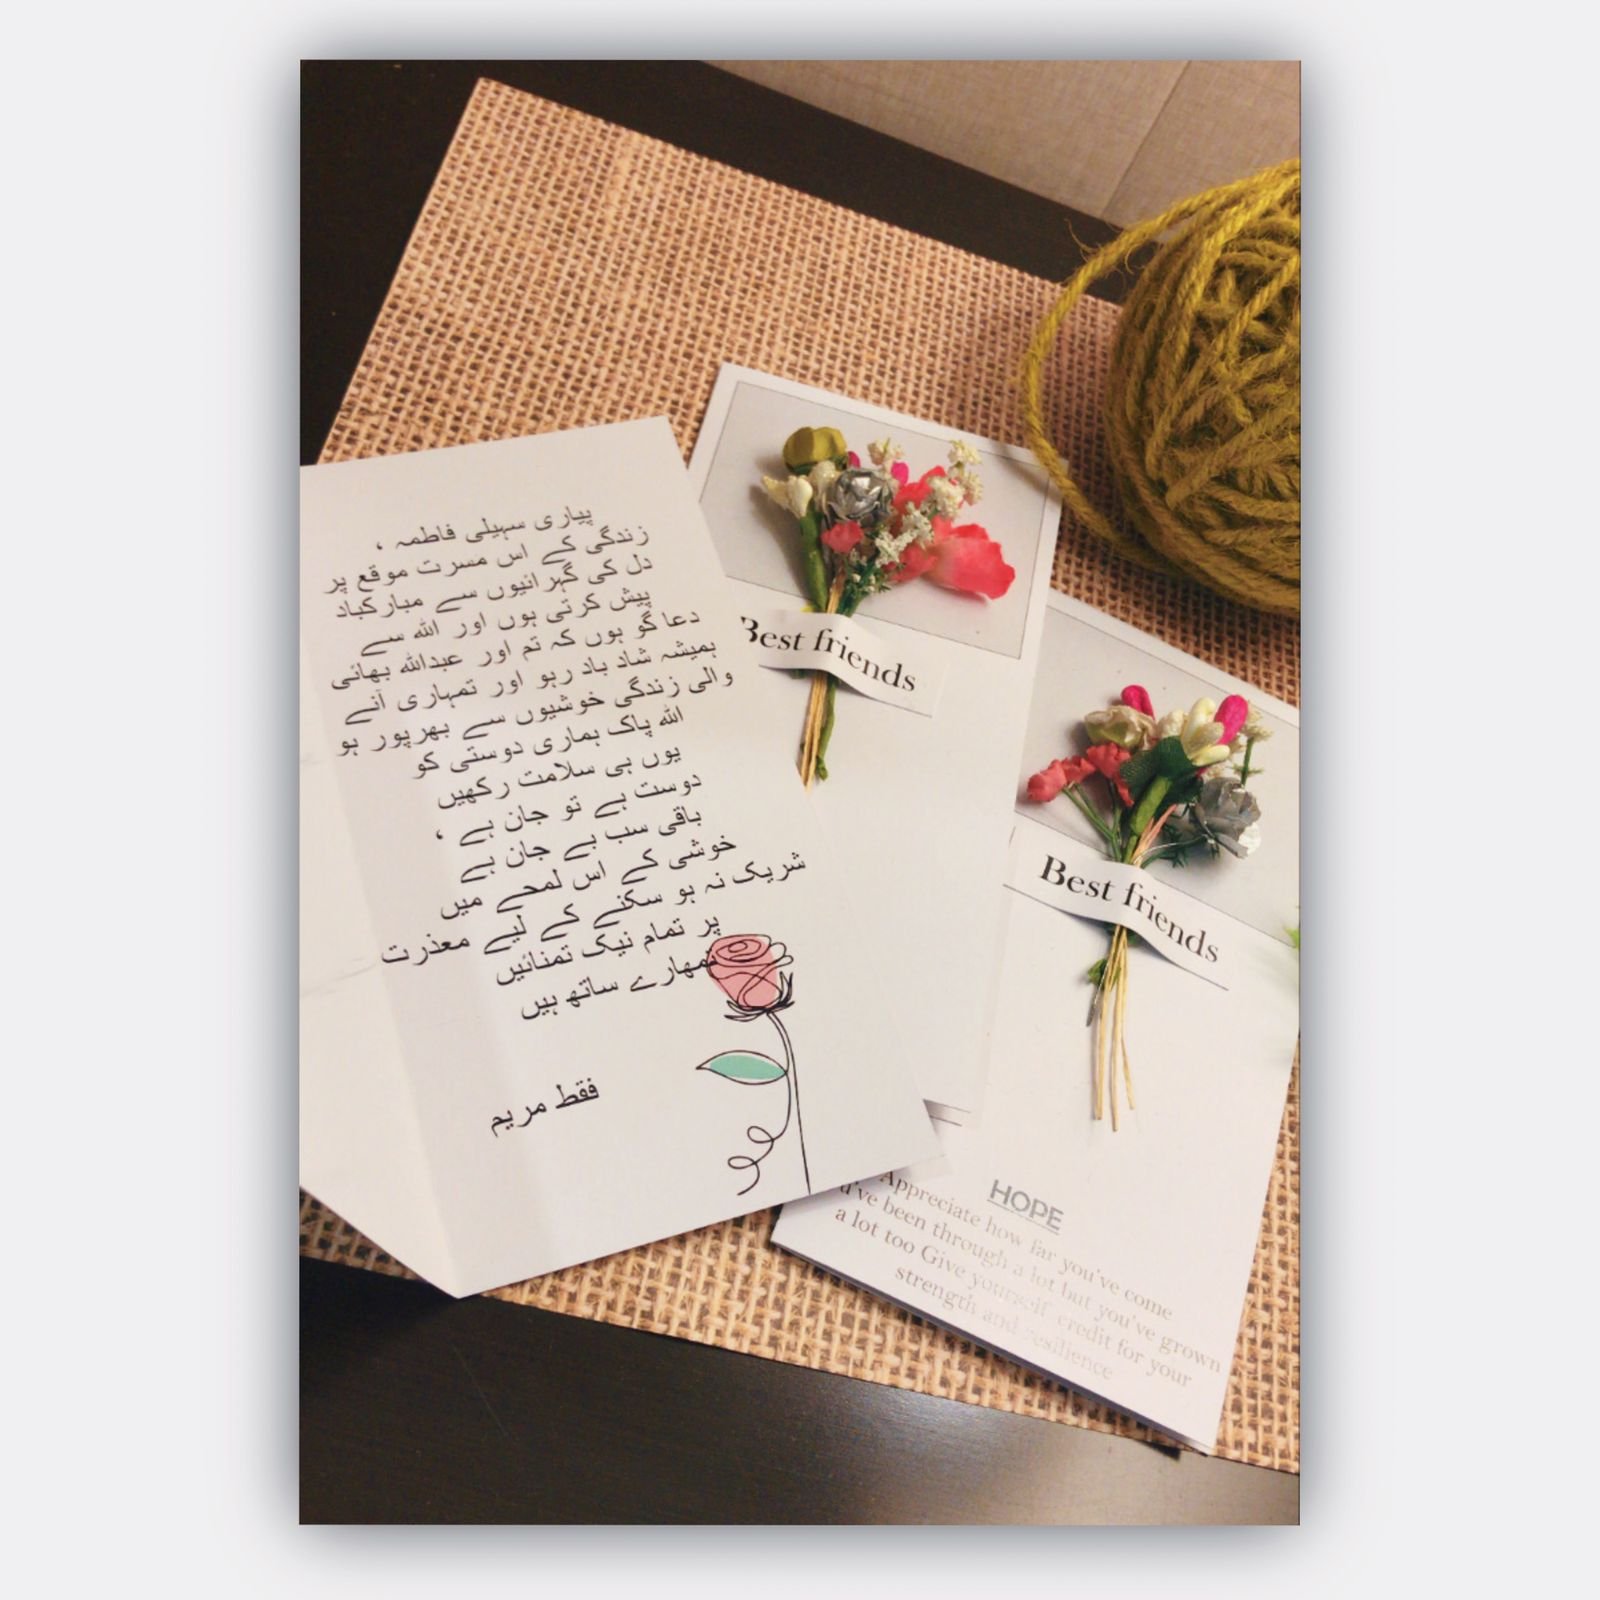 پیاری سہیلی فاطمہ ،
زندگی کے اس مسرت موقع پر
دل کی گہرائیوں سے مبارکباد
پیش کرتی ہوں اور اللہ سے
دعا گو ہوں کہ تم اور عبداللہ بھائی
ہمیشہ شاد باد رہو اور تمہاری آنے
والی زندگی خوشیوں سے بھرپور ہو
اللہ پاک ہماری دوستی کو
یوں ہی سلامت رکھیں
دوست ہے تو جان ہے ،
باقی سب بے جان ہے
خوشی کے اس لمحے میں
شریک نہ ہو سکنے کے لیے معذرت
پر تمام نیک تمنائیں
تمھارے ساتھ ہیں
فقط مریم
Best friends
Best friends
HOPE
Appreciate how far you've come
u've been through a lot but you've grown
a lot too Give yourself credit for your
strength and resilience